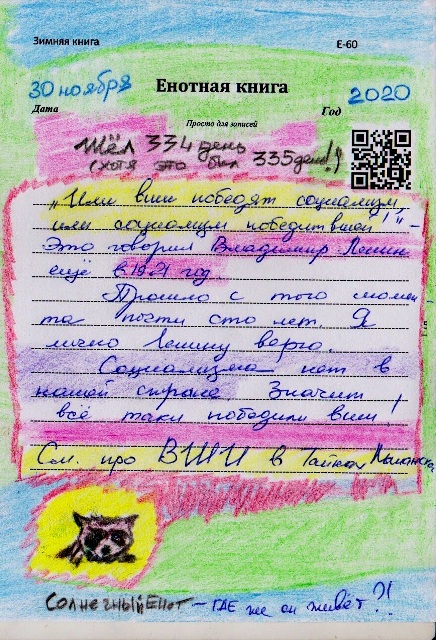 Зимняя книга Е-60
30 ноября Енотная книга 2020
Дата Год
Просто для записей
Шёл 334 день
(хотя это был 335 день!)
„Или вши победят социализм,
или социализм победит вшей!" –
Это говорил Владимир Ленин
ещё в 1921 год.
Прошло с того момен
та почти сто лет. Я
лично Ленину верю.
Социализма нет в
нашей стране Значит,
всё таки победили вши!
См. про ВШИ в Тайной
Солнечный Енот – где же он живёт?!